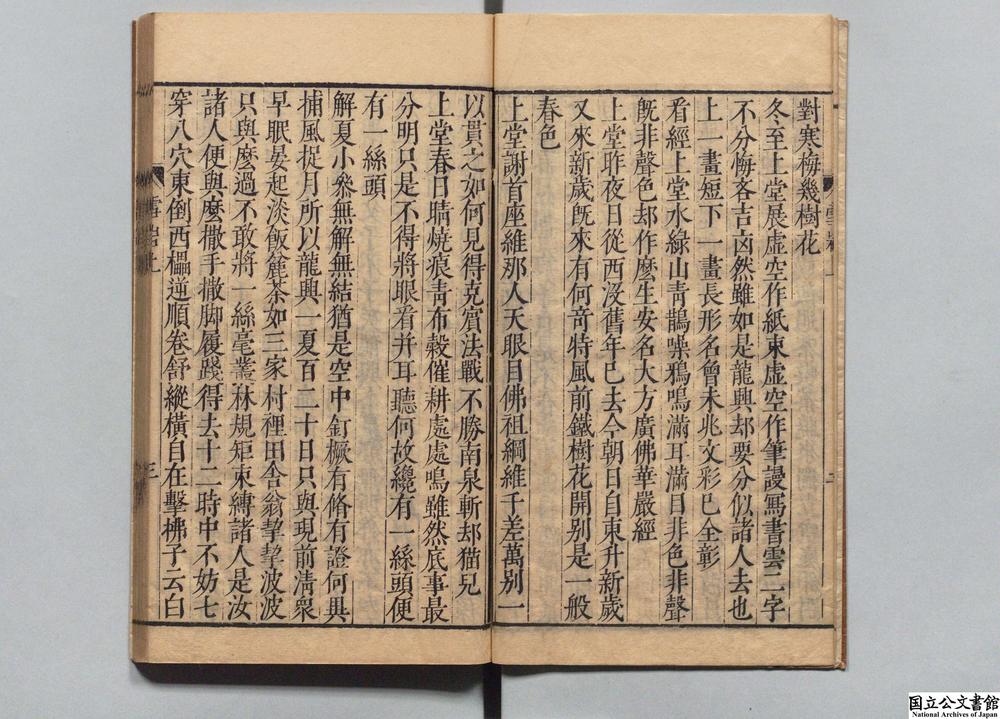 對寒梅幾樹花
冬至上堂展虛空作紙束虛空作筆謾寫書雲二字
不分悔吝吉凶然雖如是龍興却要分似諸人去也
上一畫短下一畫長形名曾未兆文彩已全彰
看經上堂水綠山青鵲噪鴉鳴滿耳滿目非色非聲
旣非聲色却作麼生安名大方廣佛華嚴經
上堂昨夜日從西沒舊年已去今朝日自東升新歲
又來新歲旣來有何奇特風前鐵樹花開別是一般
春色
上堂謝首座維那人天眼目佛祖綱維千差萬别一
以貫之如何見得克賓法戰不勝南泉斬却猫兒
上堂春日晴燒痕青布穀催耕處處鳴雖然底事最
分明只是不得將眼看并耳聽何故纔有一絲頭便
有一絲頭
解夏小參無解無結猶是空中釘橛有脩有證何異
捕風捉月所以龍興一夏百二十日只與現前清衆
早眠晏起淡飯麄茶如三家村裡田舍翁挈挈波波
只與麼過不敢將一絲毫叢林規矩束縛諸人是汝
諸人便與麼撒手撒脚履踐得去十二時中不妨七
穿八穴東倒西欄逆順卷舒縱橫自在擊拂子云白
雪岩
三
国立公文書館
National Archives of Japan